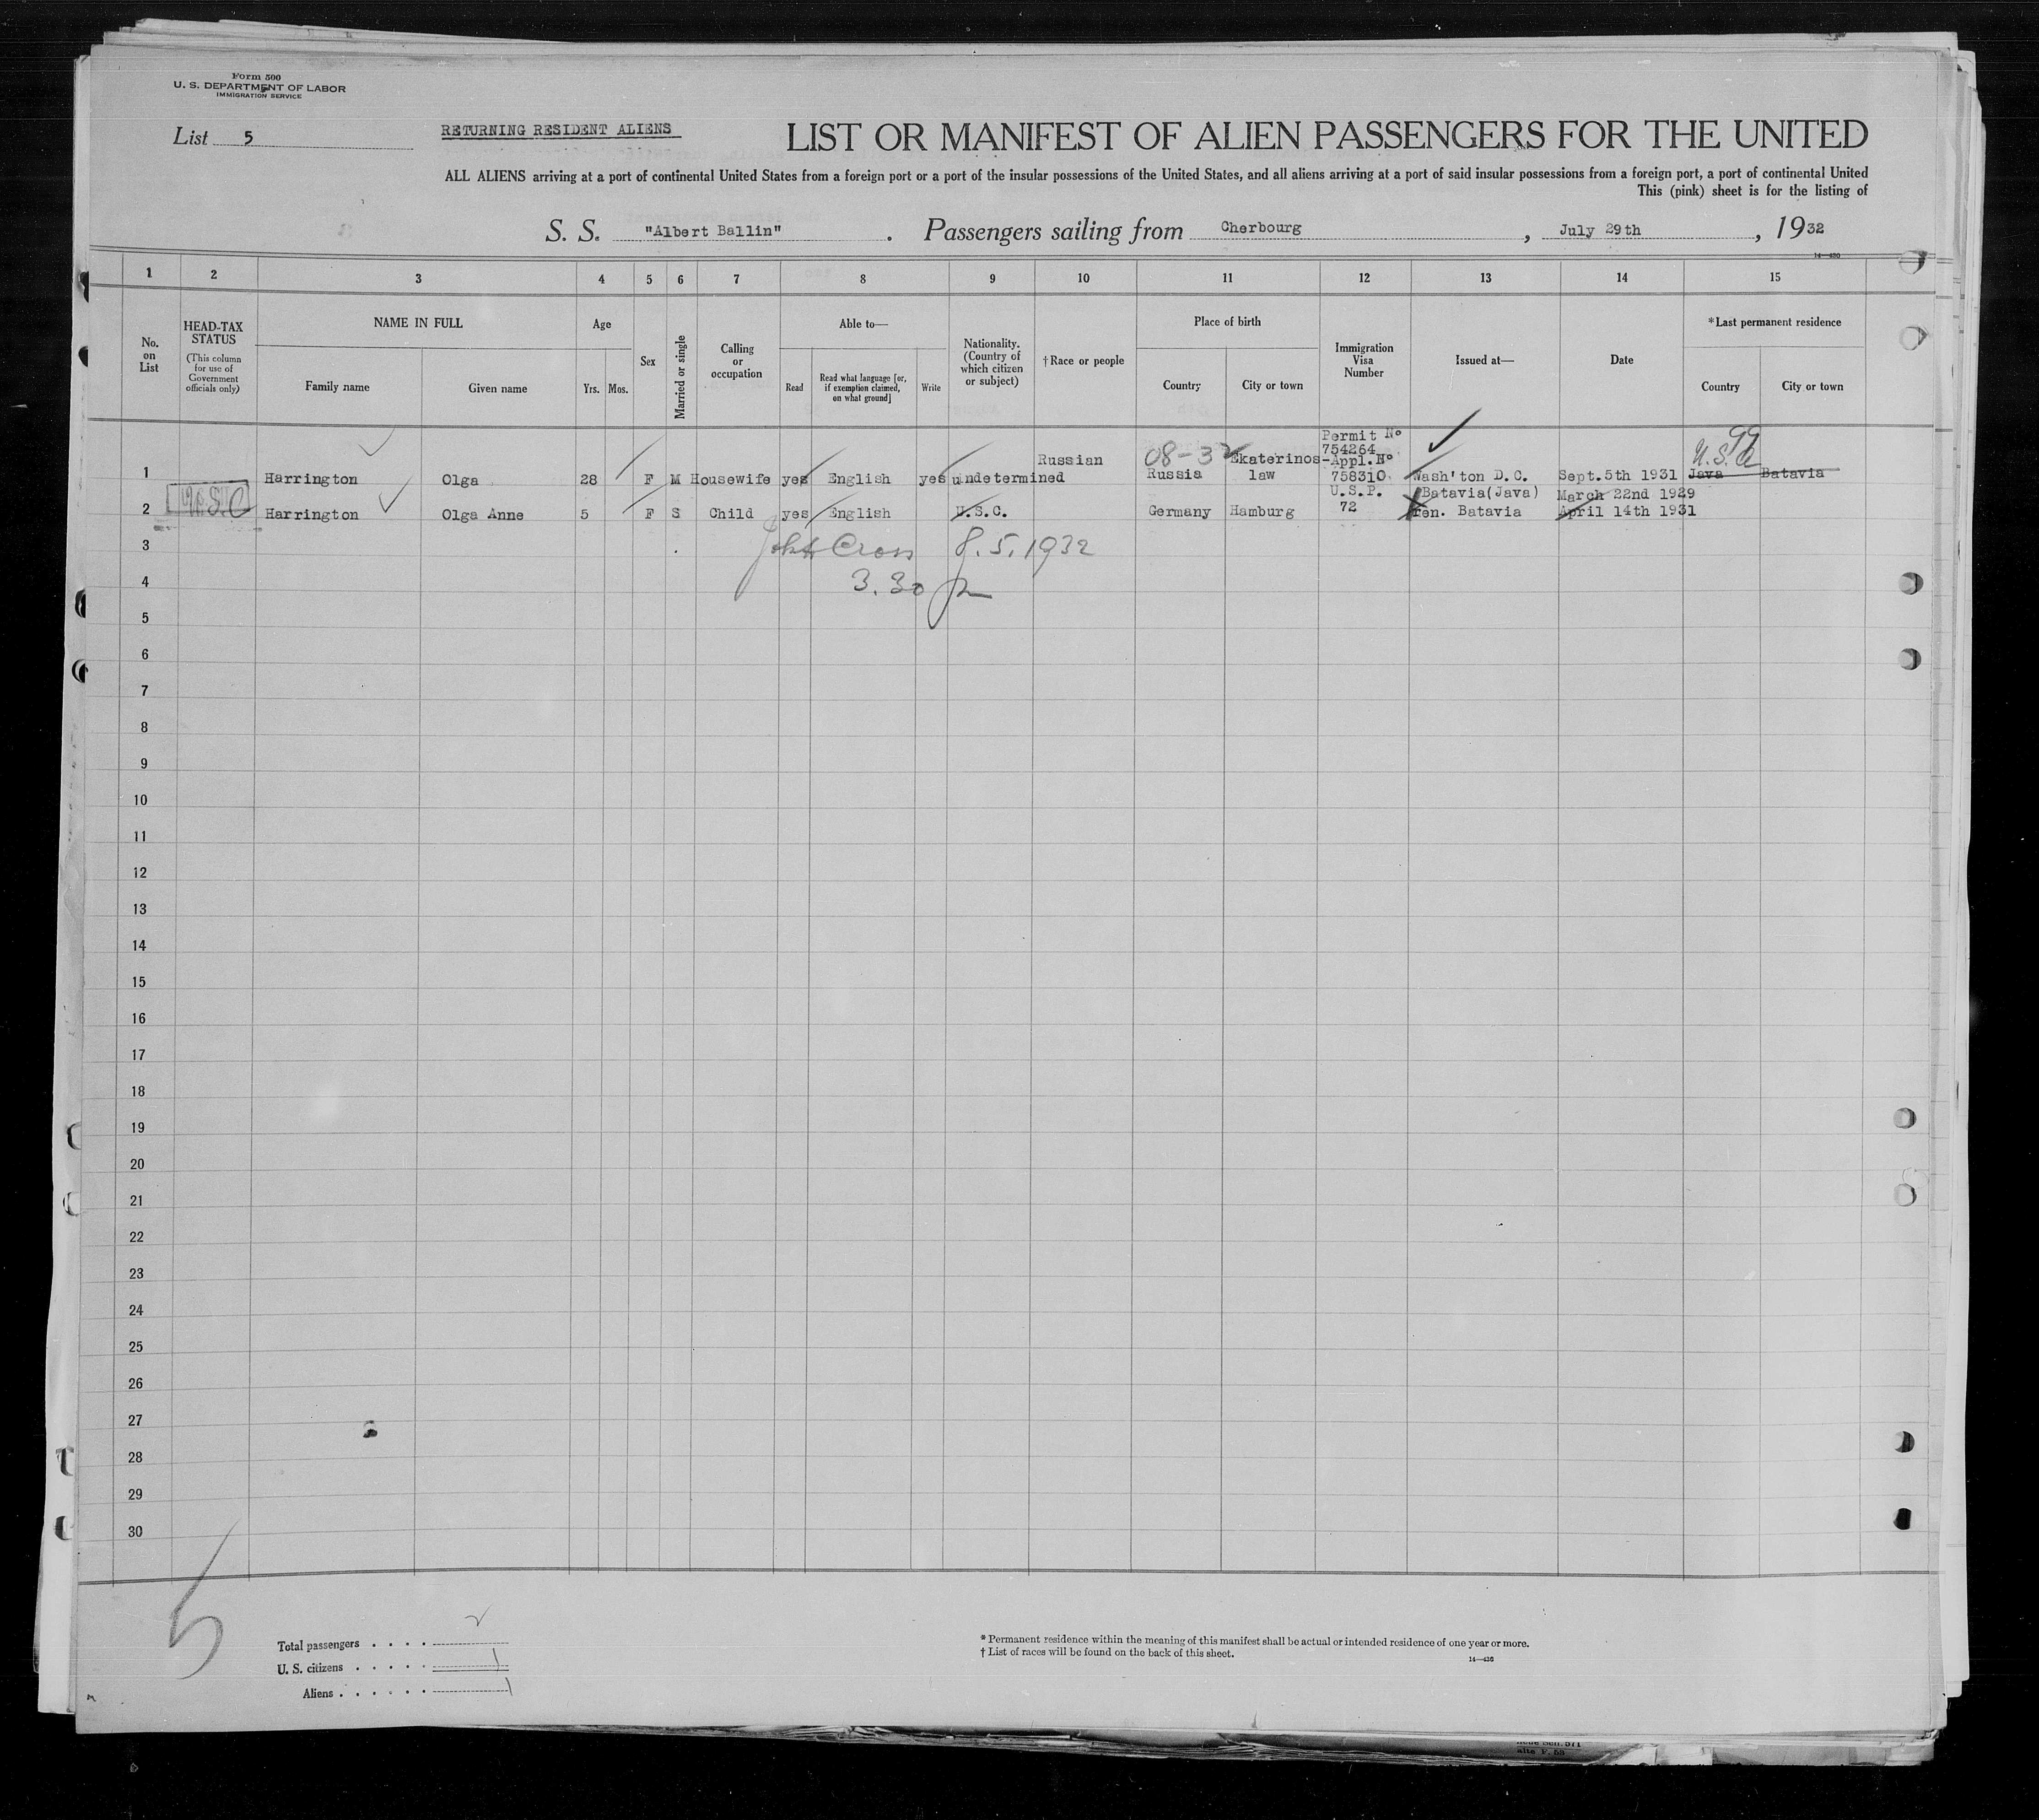 Form 500
U. S. DEPARTMENT OF LABOR
IMMIGRATION SERVICE
List 5
RETURNING RESIDENT ALIENS
LIST OR MANIFEST OF ALIEN PASSENGERS FOR THE UNITED
ALL ALIENS arriving at a port of continental United States from a foreign port or a port of the insular possessions of the United States, and all aliens arriving at a port of said insular possessions from a foreign port, a port of continental United
This (pink) sheet is for the listing of
S. S. "Albert Ballin". Passengers sailing from Cherbourg, July 29th, 1932
14—430
1 2 3 4 5 6 7 8 9 10 11 12 13 14 15
No. on List
HEAD-TAX STATUS
(This column for use of Government officials only)
NAME IN FULL
Family name
Given name
Age
Yrs. Mos.
Sex
Married or single
Calling or occupation
Able to—
Read
Read what language [or, if exemption claimed, on what ground]
Write
Nationality. (Country of which citizen or subject)
†Race or people
Place of birth
Country
City or town
Immigration Visa Number
Issued at—
Date
*Last permanent residence
Country
City or town
Permit No
754264
08-32
U.S.A
99
Russian
Ekaterinos-Appl.No
1 Harrington Olga 28 F M Housewife yes English yes undetermined Russia law 758310 Wash'ton D.C. Sept.5th 1931 Java Batavia
U.S.P. Batavia(Java) March 22nd 1929
2 U.S.C Harrington Olga Anne 5 F S Child yes English U.S.C. Germany Hamburg 72 ren. Batavia April 14th 1931
3 John Cross 8.5.1932
4 3.30 pm
5
6
7
8
9
10
11
12
13
14
15
16
17
18
19
20
21
22
23
24
25
26
27
28
29
30
5
Total passengers . . . . 2
U. S. citizens . . . . . 1
Aliens . . . . . . 1
* Permanent residence within the meaning of this manifest shall be actual or intended residence of one year or more.
† List of races will be found on the back of this sheet.
14—430